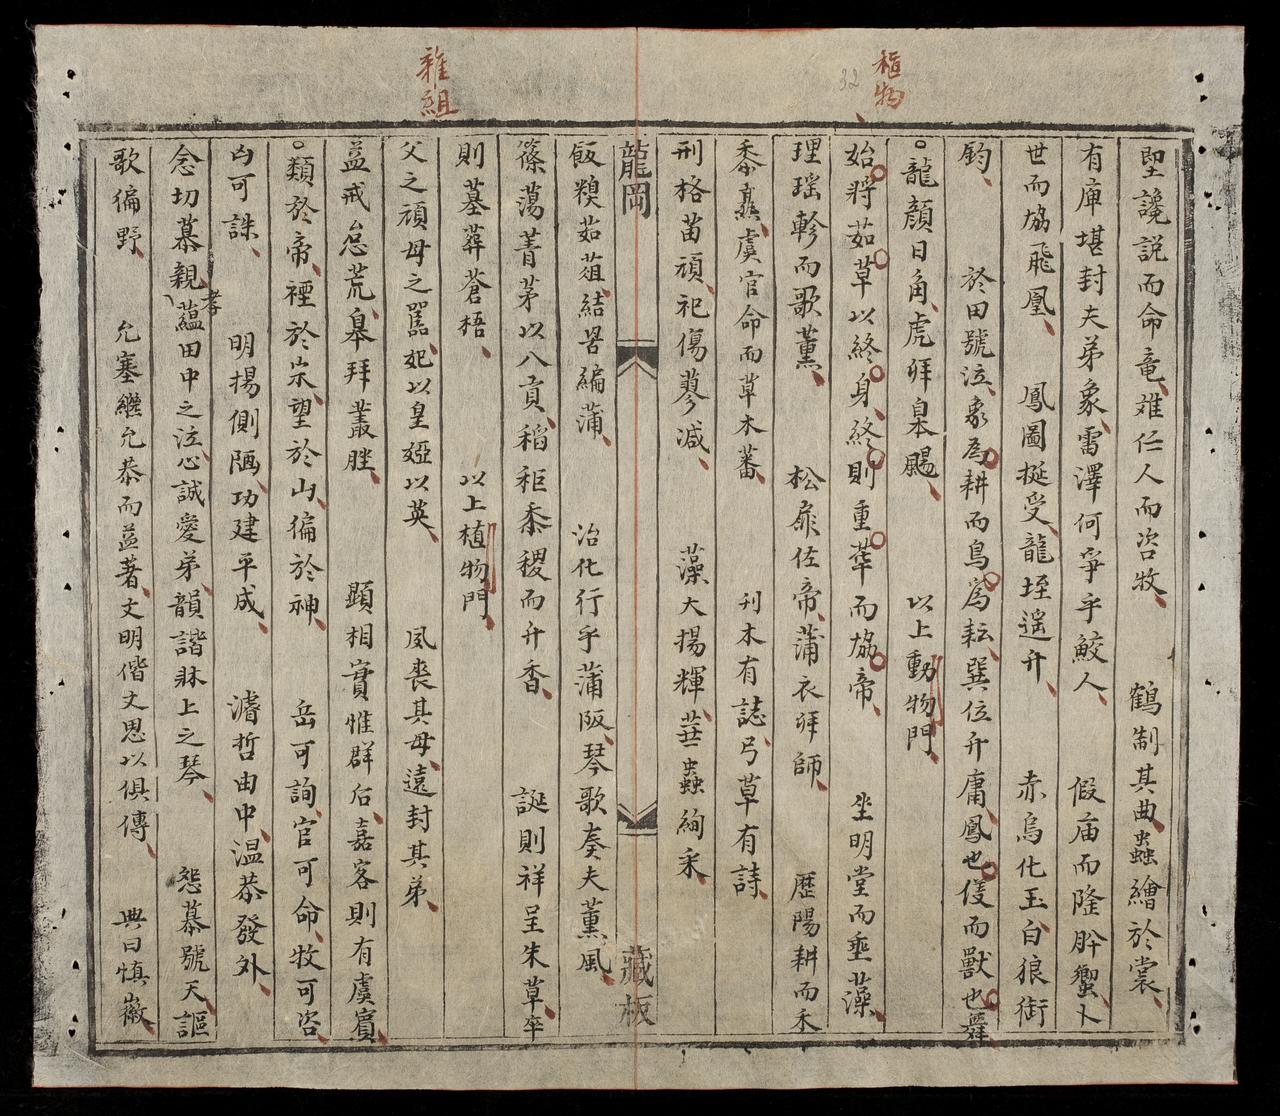 植物
32
聖讒説而命竜、难任人而咨牧、　鶴制其曲、蟲繪於裳、
有庳堪封夫弟象、雷澤何爭乎鮫人、　假庙而隆肸蠁、卜
世而協飛凰、　鳳圖挻受、龍垤遥升、　赤烏化玉、白狼銜
鈞、　於田號泣、象爲耕而鳥爲耘、巽位升庸、鳳也仪而獸也舞
龍顔日角、虎拜臯颺、　以上動物門、
始將茹草以終身、終則重華而協帝、　坐明堂而垂藻、
理瑶軫而歌薰、　松扉佐帝、蒲衣拜師、　歷陽耕而禾
黍熟、虞官命而草木蕃、　刊木有誌、弓草有詩、
刑格苗頑、祀傷蓼减、　藻火揚輝、華蟲絢采、
龍岡　藏板
飯糗茹葅、結罟編蒲、　治化行乎蒲阪、琴歌奏夫薰風、
篠蕩菁茅以八貢、稻秬黍稷而升香、　誕則祥呈朱草、卒
則墓葬蒼梧、　以上植物門、
雜組
父之頑母之嚚、妃以皇娅以英、　夙喪其母、遠封其弟、
益戒怠荒、臯拜叢脞、　顕相實惟群后、嘉客則有虞賓、
類於帝、禋於宗、望於山、徧於神、　岳可詢、官可命、牧可咨、
凶可誅、　明揚側陋、功建平成、　濬哲由中、温恭發外、
念切慕親、孝蘊田中之泣、心誠愛弟、韻諧牀上之琴、　怨慕號天、謳
歌徧野、　允塞繼允恭而益著、文明偕文思以俱傳、　典曰慎徽、